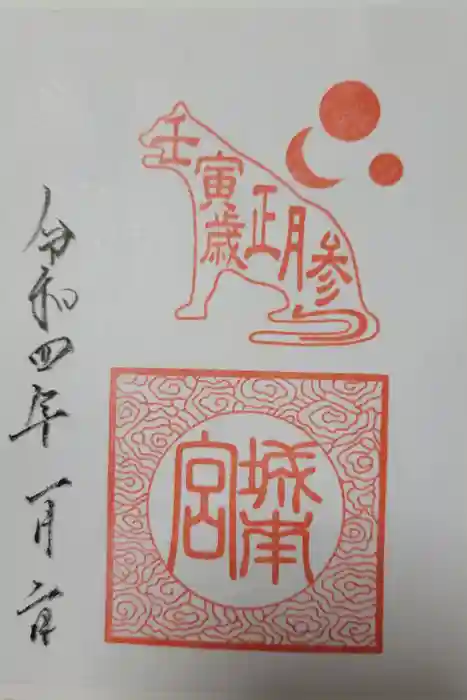 壬寅歳正月参
城南宮
令和四年一月日